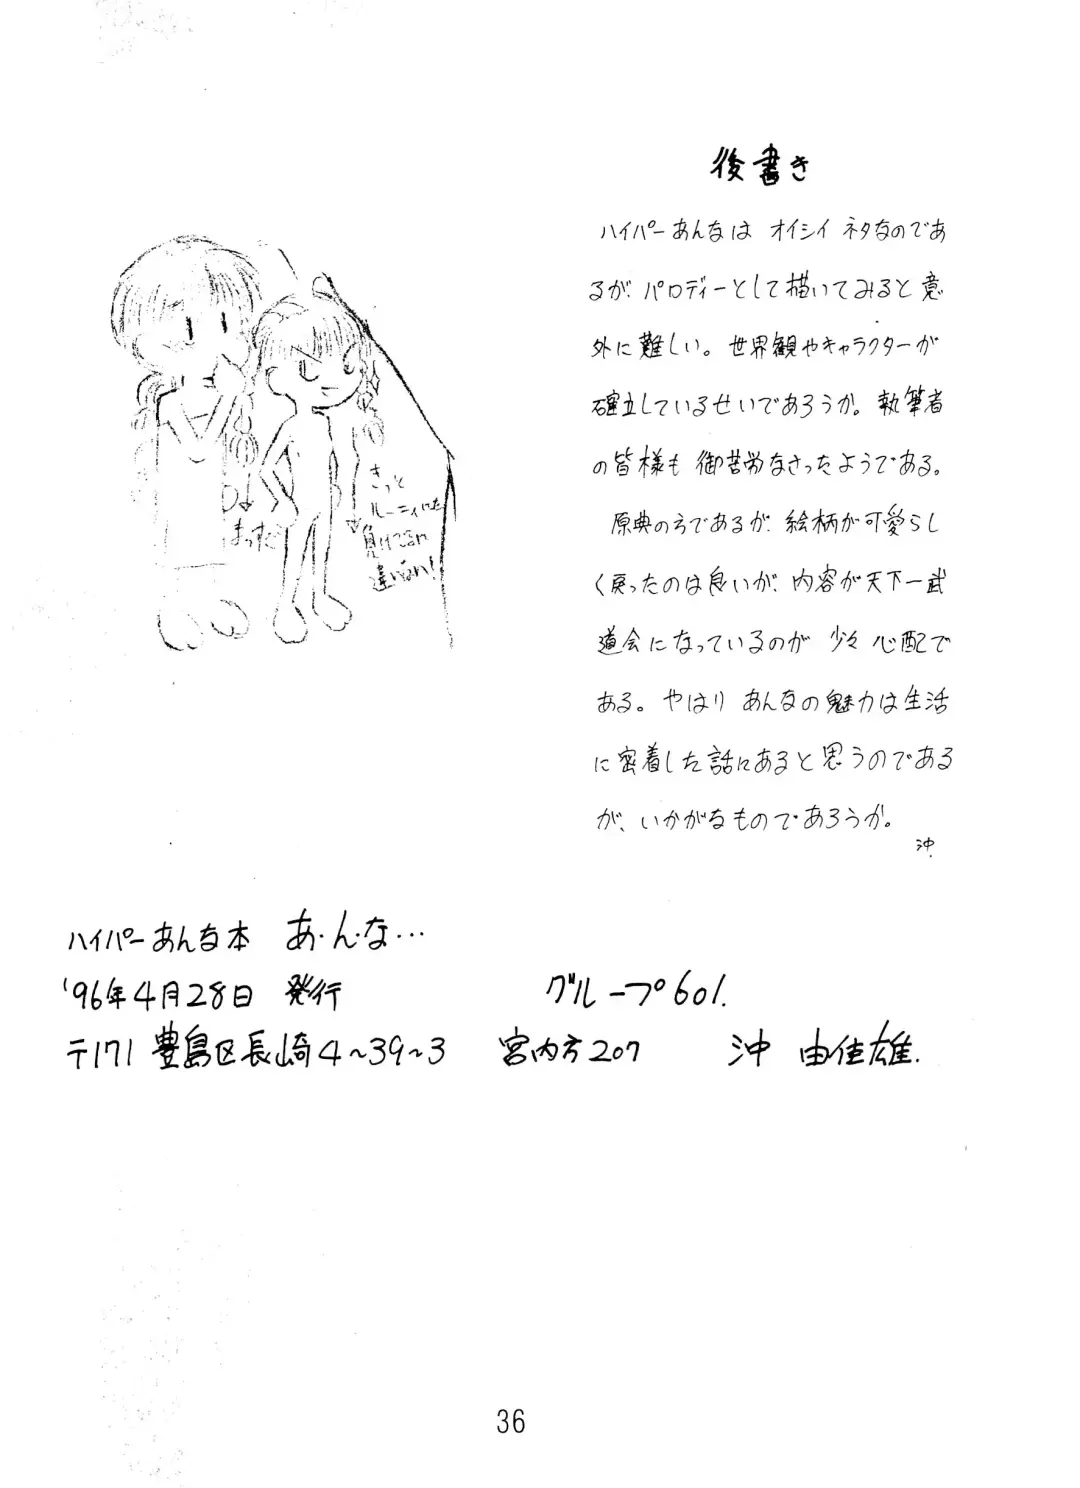 後書き
ハイパーあんなは オイシイ ネタなのであ
るが、パロディーとして描いてみると意
外に難しい。世界観やキャラクターが
確立しているせいであろうか。執筆者
の皆様も 御苦労なさったようである。
原典の方であるが、絵柄が可愛らし
く戻ったのは良いが、内容が天下一武
道会になっているのが 少々 心配で
ある。やはり あんなの魅力は生活
に密着した話にあると思うのである
が、いかがなものであろうか。
沖.
きっと
ルーニィにも
負けてるに
違いない!
ハイパーあんな本 あ・ん・な・・・
'96年4月28日 発行
グループ601.
〒171 豊島区長崎4〜39〜3 宮内方207 沖 由佳雄.
36